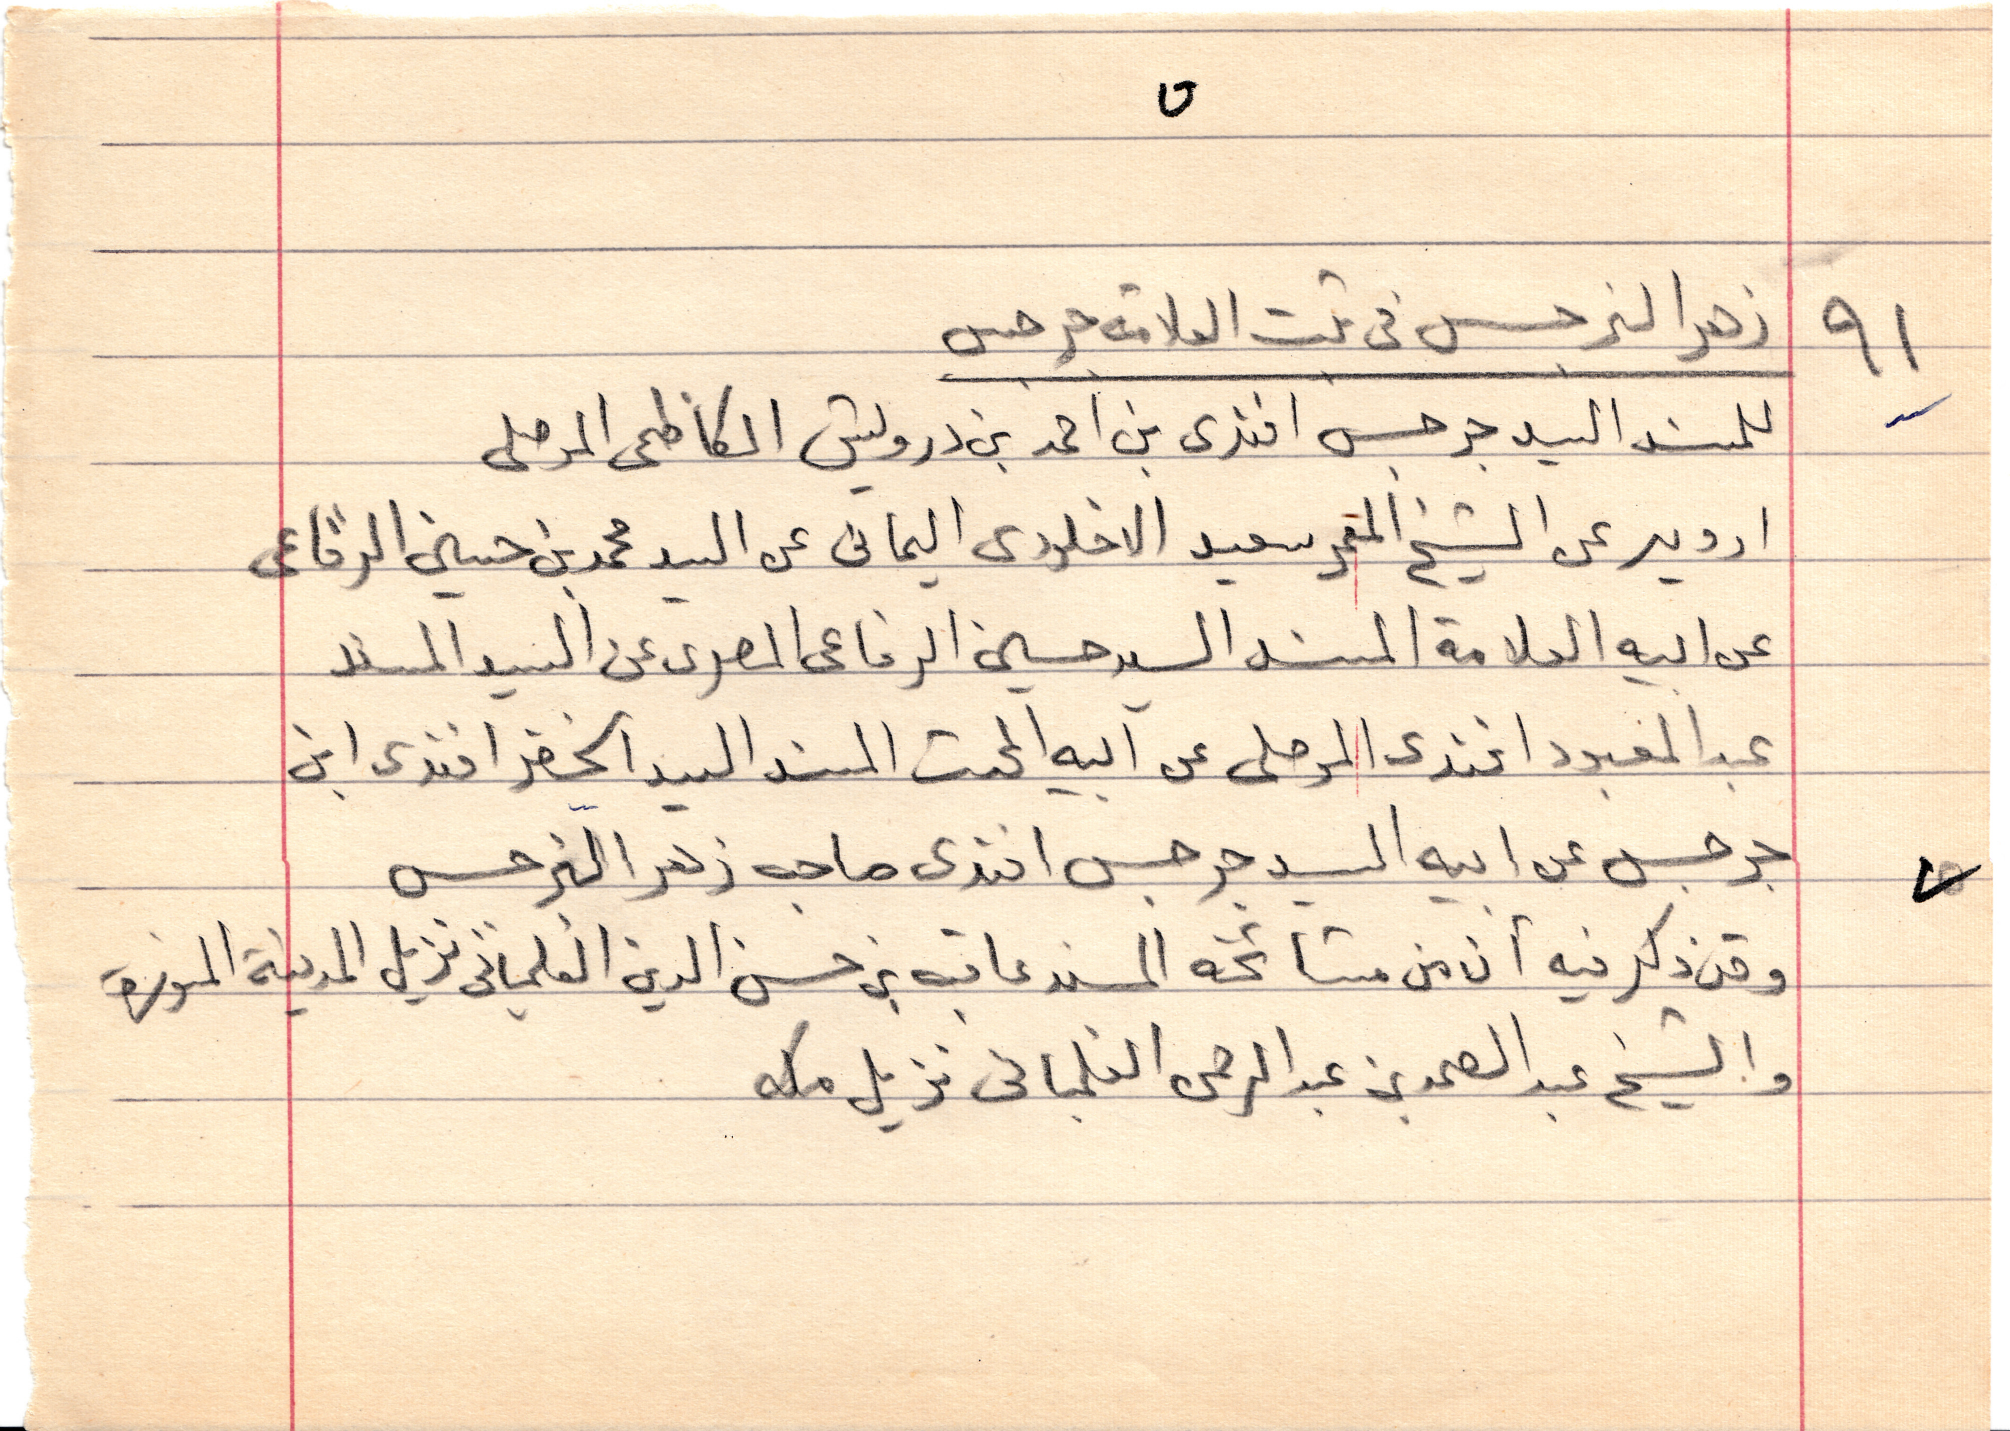 ٩١ زهر النرجس فى ثبت العلامة جرجس
للمسند السيد جرجس افندى بن احمد بن درويش الكاظمى الموصلى
ارويه عن الشيخ المعمر سعيد اليمانى عن السيد محمد بن حسين الرفاعى
عن ابيه العلامة المسند السيد حسين الرفاعى المصرى عن السيد المسند
عبد المعبود افندى الموصلى عن ابيه المسند السيد الخضر افندى ابن
جرجس عن ابيه السيد جرجس افندى صاحب زهر النرجس
وقد ذكر فيه أن من مشائخه المسند بن حسن الدين الفلمبانى نزيل المدينة المنورة
والشيخ عبد الصمد بن عبد الرحمن الفلمبانى نزيل مكه